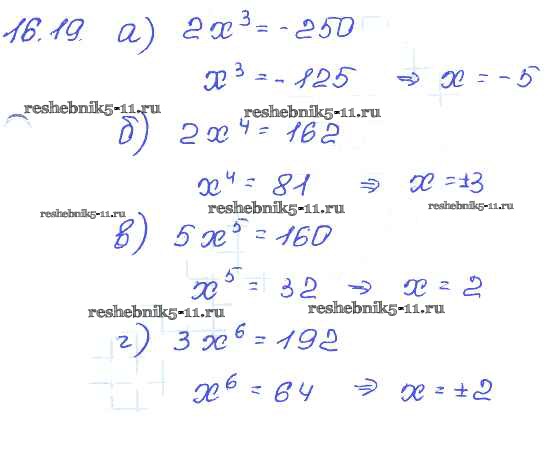 16.19. а) 2x³ = -250
x³ = -125 ⇒ x = -5
reshebnik5-11.ru reshebnik5-11.ru
б) 2x⁴ = 162
x⁴ = 81 ⇒ x = ±3
reshebnik5-11.ru reshebnik5-11.ru reshebnik5-11.ru
в) 5x⁵ = 160
x⁵ = 32 ⇒ x = 2
reshebnik5-11.ru reshebnik5-11.ru
г) 3x⁶ = 192
x⁶ = 64 ⇒ x = ±2